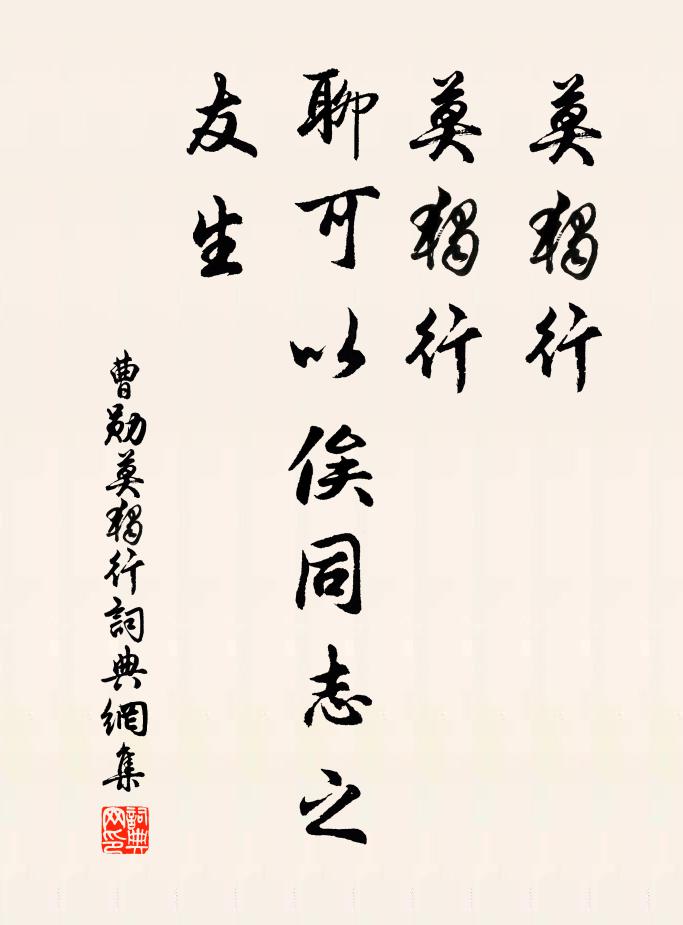 莫獨行
莫獨行
聊可以俟同志之
友生
曹勛莫獨行詞典網集
詞典網印